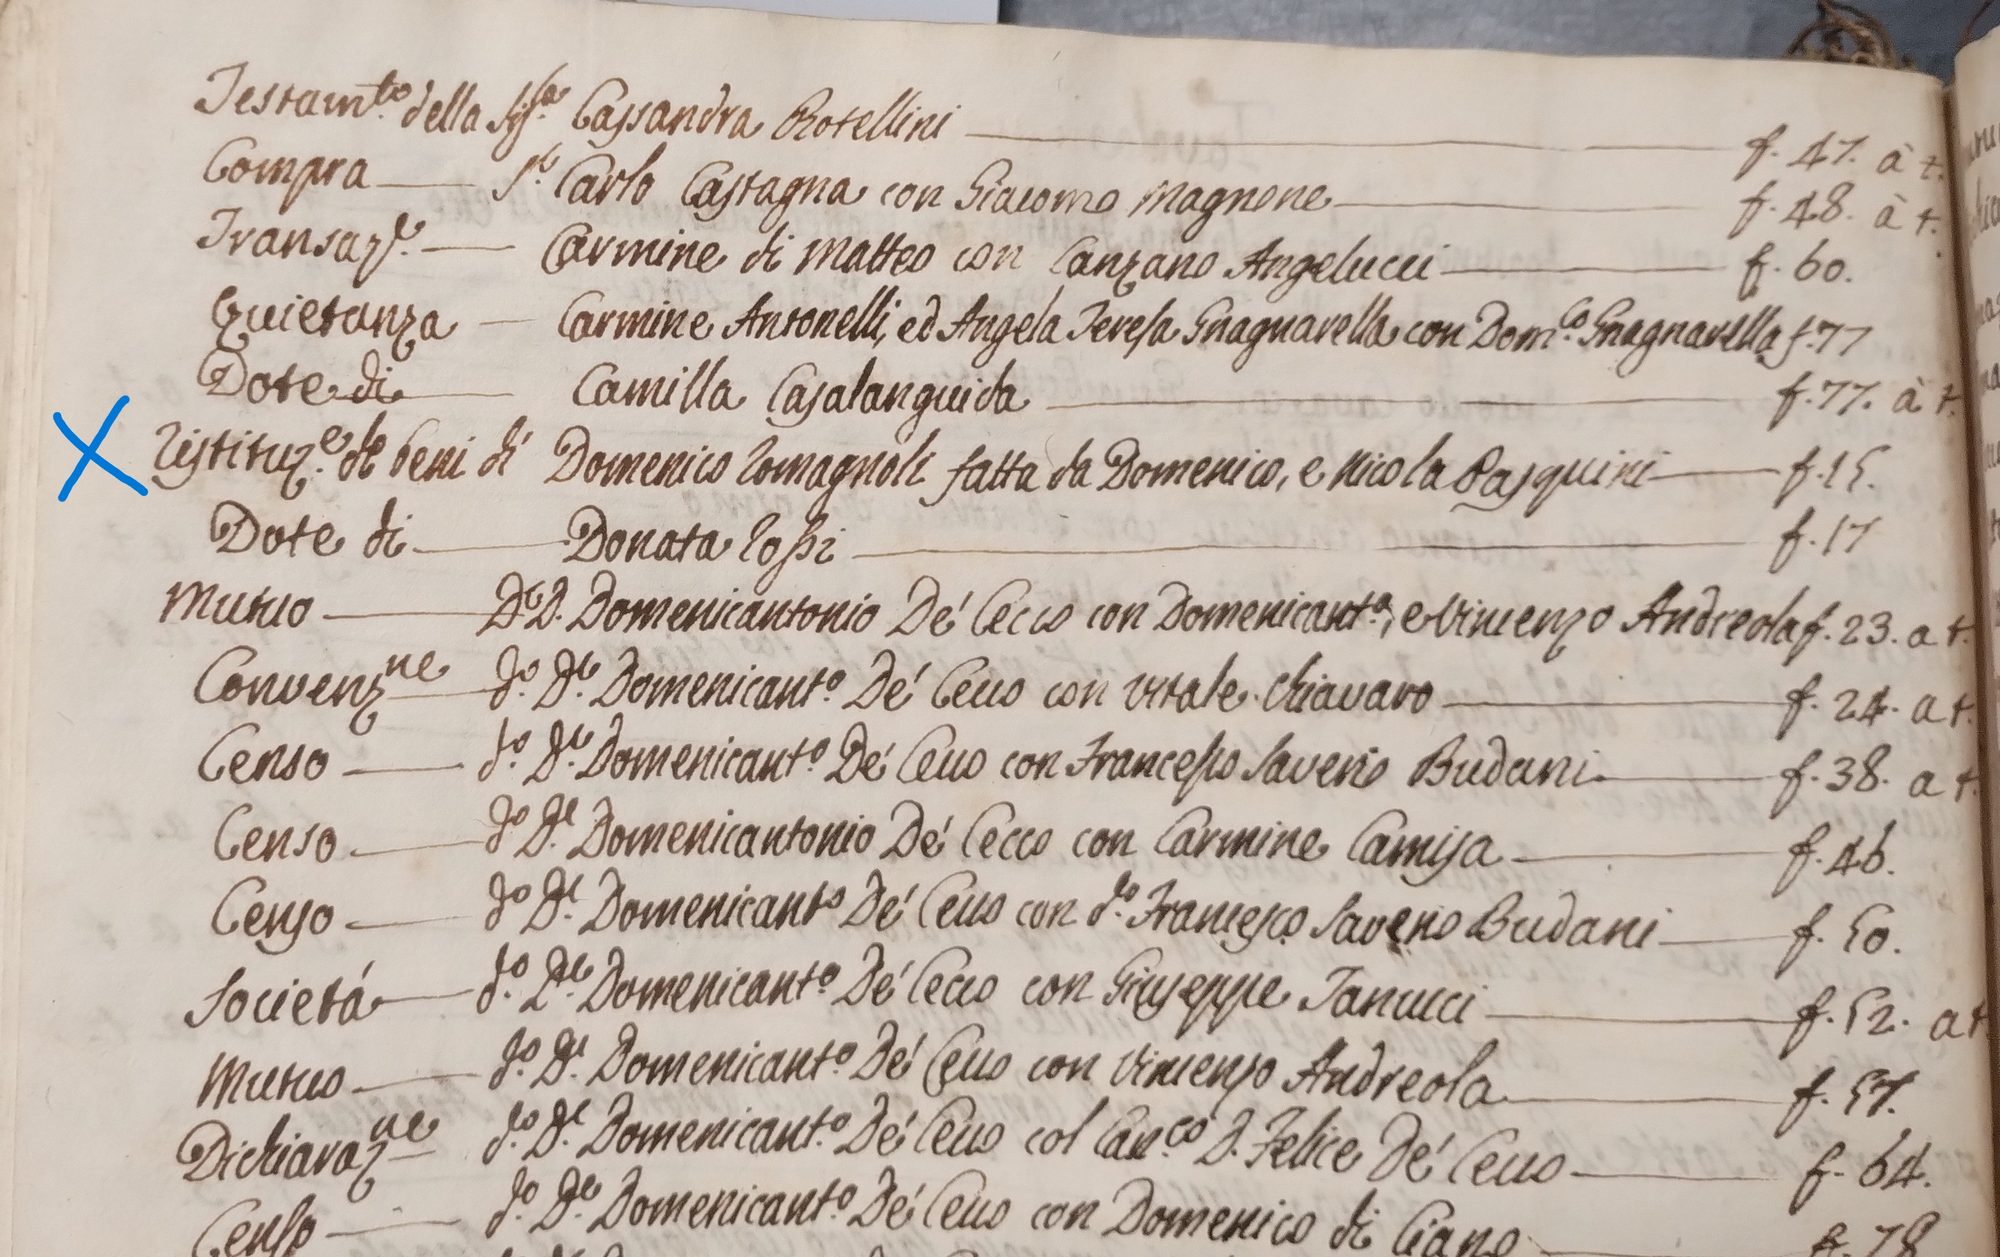 Testam.to della Sig.ra Cassandra Rotellini f. 47. à t.
Compra S.r Carlo Castagna con Giacomo Magnone f. 48. à t.
Transaz.e Carmine di Matteo con Canzano Angelucci f. 60.
Quietanza Carmine Antonelli, ed Angela Teresa Gnagnarella con Dom.co Gnagnarella f. 77
Dote di Camilla Casalanguida f. 77. à t.
Restituz.e de beni di Domenico Romagnoli fatta da Domenico, e Nicola Pasquini f. 15.
Dote di Donata Rossi f. 17
Mutuo D.r D. Domenicantonio De' Cecco con Domenicant.o, e Vincenzo Andreola f. 23. a t.
Convenz.ne D.o D.r Domenicant.o De' Cecco con Vitale Chiavaro f. 24. a t.
Censo D.o D.r Domenicant.o De' Cecco con Francesco Saverio Budani f. 38. a t.
Censo D.o D.r Domenicantonio De' Cecco con Carmine Camisa f. 46.
Censo D.o D.r Domenicant.o De' Cecco con d.o Francesco Saverio Budani f. 50.
Società D.o D.r Domenicant.o De' Cecco con Giuseppe Ianucci f. 52. a t.
Mutuo D.o D.r Domenicant.o De' Cecco con Vincenzo Andreola f. 57.
Dichiaraz.ne D.o D.r Domenicant.o De' Cecco col Can.co D. Felice De' Cecco f. 64.
Censo D.o D.r Domenicant.o De' Cecco con Domenico di Ciano f. 78